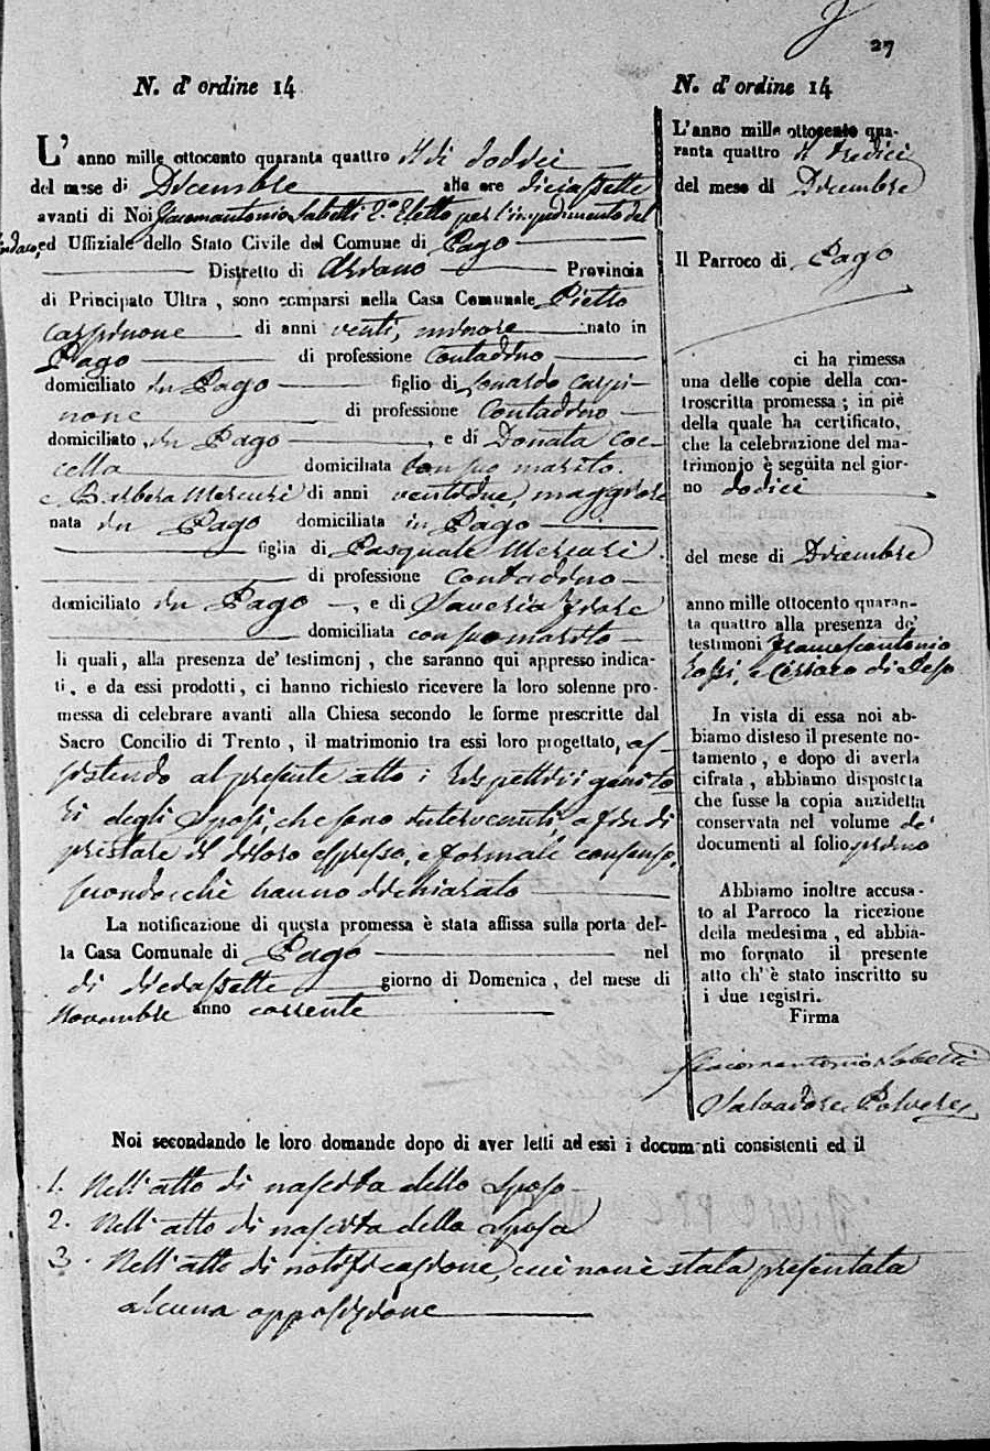 27
N. d' ordine 14
L' anno mille ottocento quaranta quattro il di dodici
del mese di Dicembre alle ore diciassette
avanti di Noi Giacomantonio Sabelli 2.° Eletto per l'impedimento del
Sindaco, ed Uffiziale dello Stato Civile del Comune di Pago
Distretto di Ariano Provincia
di Principato Ultra , sono comparsi nella Casa Comunale Pietro
Carpinone di anni venti, minore nato in
Pago di professione Contadino
domiciliato in Pago figlio di Leonardo Carpi-
none di professione Contadino
domiciliato in Pago , e di Donata Coc-
cella domiciliata con suo marito.
e Barbera Mercuri di anni ventidue, maggiore
nata in Pago domiciliata in Pago
figlia di Pasquale Mercuri
di professione contadino
domiciliato in Pago , e di Saveria Iiore
domiciliata con suo marito
li quali, alla presenza de' testimonj , che saranno qui appresso indica-
ti, e da essi prodotti, ci hanno richiesto ricevere la loro solenne pro-
messa di celebrare avanti alla Chiesa secondo le forme prescritte dal
Sacro Concilio di Trento , il matrimonio tra essi loro progettato, as-
sistendo al presente atto i rispettivi genito
ri degli Sposi, che sono intervenuti a fin di
pristare il diloro espresso, e formale consenso,
secondocchè hanno dichiarato
La notificazione di questa promessa è stata affissa sulla porta del-
la Casa Comunale di Pago nel
di diciassette giorno di Domenica , del mese di
Novembre anno corrente
N. d' ordine 14
L'anno mille ottocento qua-
ranta quattro il tredici
del mese di Dicembre
Il Parroco di Pago
ci ha rimessa
una delle copie della con-
troscritta promessa ; in piè
della quale ha certificato,
che la celebrazione del ma-
trimonio è seguita nel gior-
no dodici
del mese di Dicembre
anno mille ottocento quaran-
ta quattro alla presenza de'
testimoni Francescantonio
Rossi, e Cesareo di Ieso
In vista di essa noi ab-
biamo disteso il presente no-
tamento , e dopo di averla
cifrata , abbiamo disposto
che fusse la copia anzidetta
conservata nel volume de'
documenti al folio primo
Abbiamo inoltre accusa-
to al Parroco la ricezione
della medesima , ed abbia-
mo formato il presente
atto ch' è stato inscritto su
i due registri.
Firma
Giacomantonio Sabelli
Salvadore Polvere
Noi secondando le loro domande dopo di aver letti ad essi i documenti consistenti ed il
1. Nell' atto di nascita dello Sposo
2. Nell' atto di nascita della Sposa
3. Nell' atto di notificazione, cui non è stata presentata
alcuna opposizione